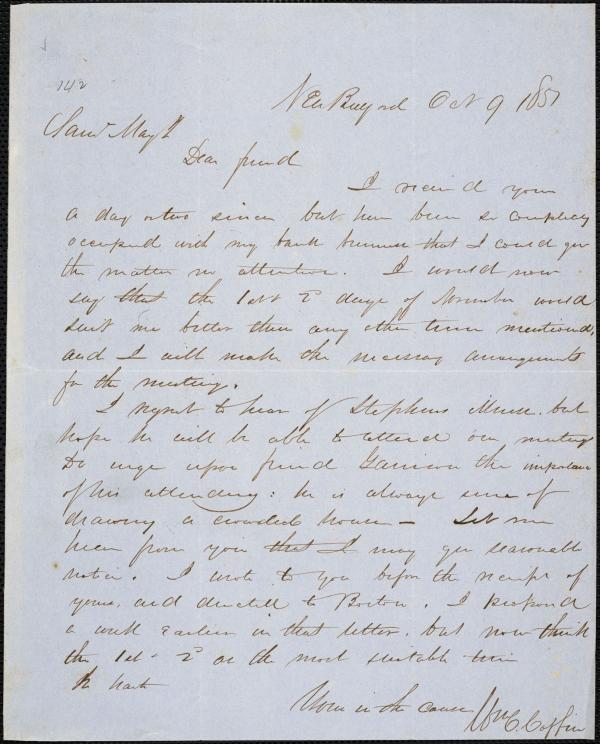 142
New Bedford Oct 9 1857
Saml May Jr
Dear friend
I received yours
a day or two since but have been so completely
occupied with my bank business that I could give
the matter no attention. I would now
say that the 1st & 2d days of November would
suit me better than any other time mentioned,
and I will make the necessary arrangements
for the meetings.
I regret to hear of Stephens illness. but
hope he will be able to attend our meetings
Do urge upon friend Garrison the importance
of his attending: he is always sure of
drawing a crowded house — Let me
hear from you that I may give seasonable
notice. I wrote to you before the receipt of
yours, and directed to Boston. I proposed
a week earlier in that letter, but now think
the 1st & 2d as the most suitable time
In haste
Yours in the cause Wm C. Coffin